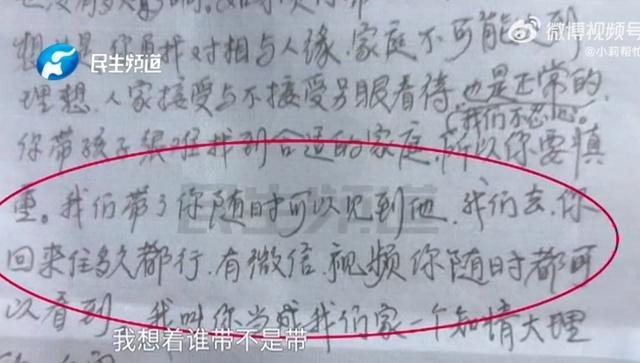 微博视频号
@小莉帮忙
民生频道
对相与人缘、家庭不可能
理想、人家接受与不接受另眼看待，也是正常的，
（我们不忍心。）
你带孩子很难找到合适的家庭，所以你要慎
重。我们带了你随时可以见到他、我们去、你
回来住多久都行、有微信、视频你随时都可
以看到、我叫你当成我们家一个知情大理
民生频道
我想着谁带不是带